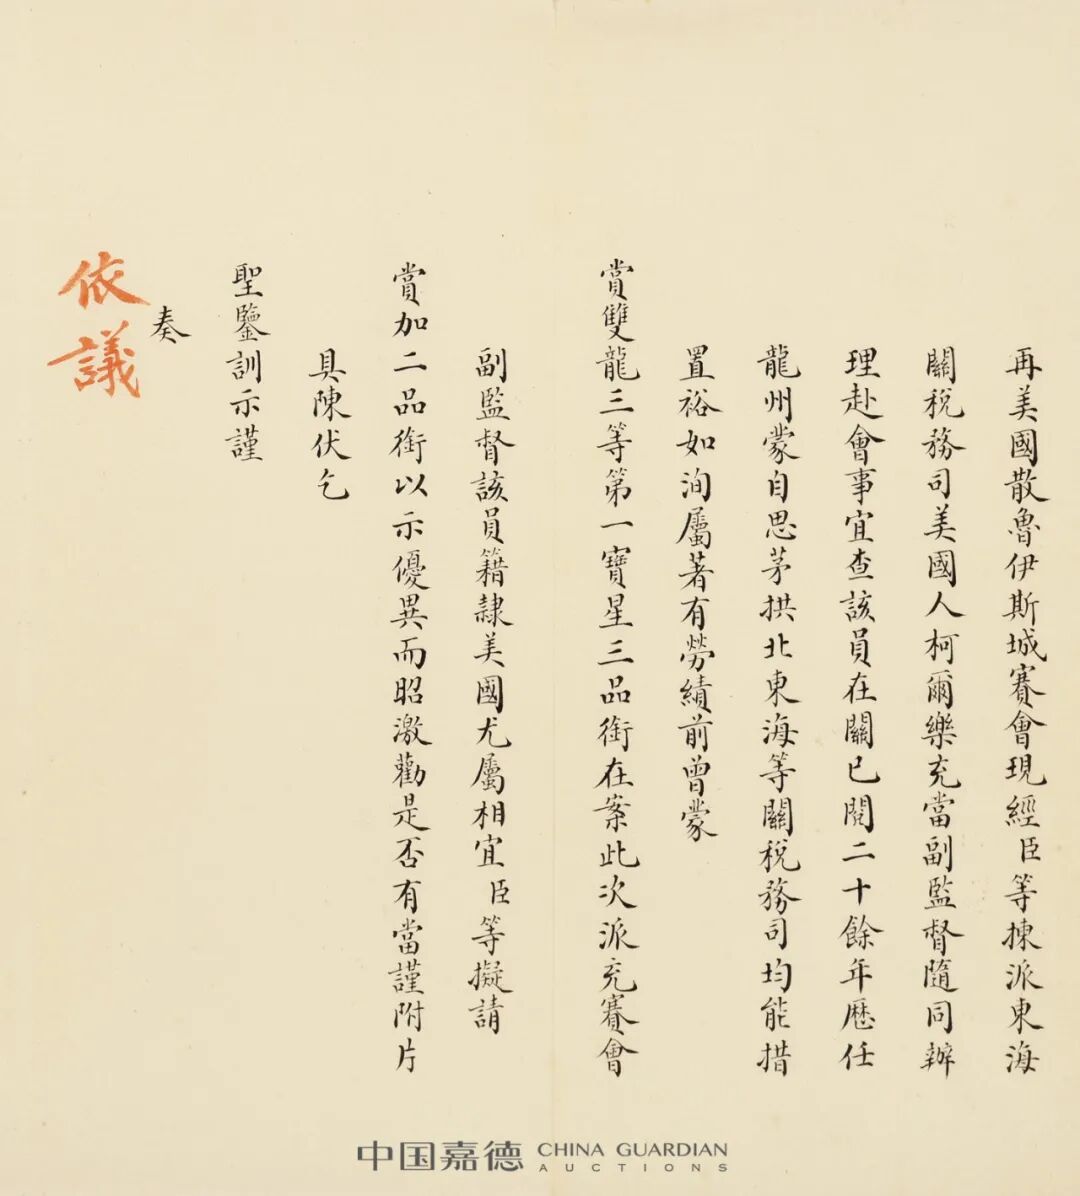 再美國散魯伊斯城賽會現經臣等揀派東海
關稅務司美國人柯爾樂充當副監督隨同辦
理赴會事宜查該員在關已閱二十餘年歷任
龍州蒙自思茅拱北東海等關稅務司均能措
置裕如洵屬著有勞績前曾蒙
賞雙龍三等第一寶星三品銜在案此次派充賽會
副監督該員籍隸美國尤屬相宜臣等擬請
賞加二品銜以示優異而昭激勸是否有當謹附片
具陳伏乞
聖鑒訓示謹
奏
依議
中国嘉德 CHINA GUARDIAN
AUCTIONS